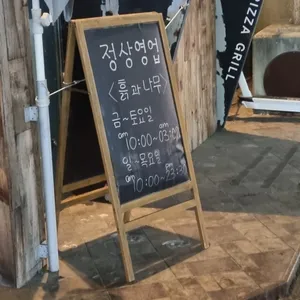 정상영업
<흙과 나무>
금~토요일
am 10:00~03:00 am
일~목요일
am 10:00~23:00
PIZZA GRILL